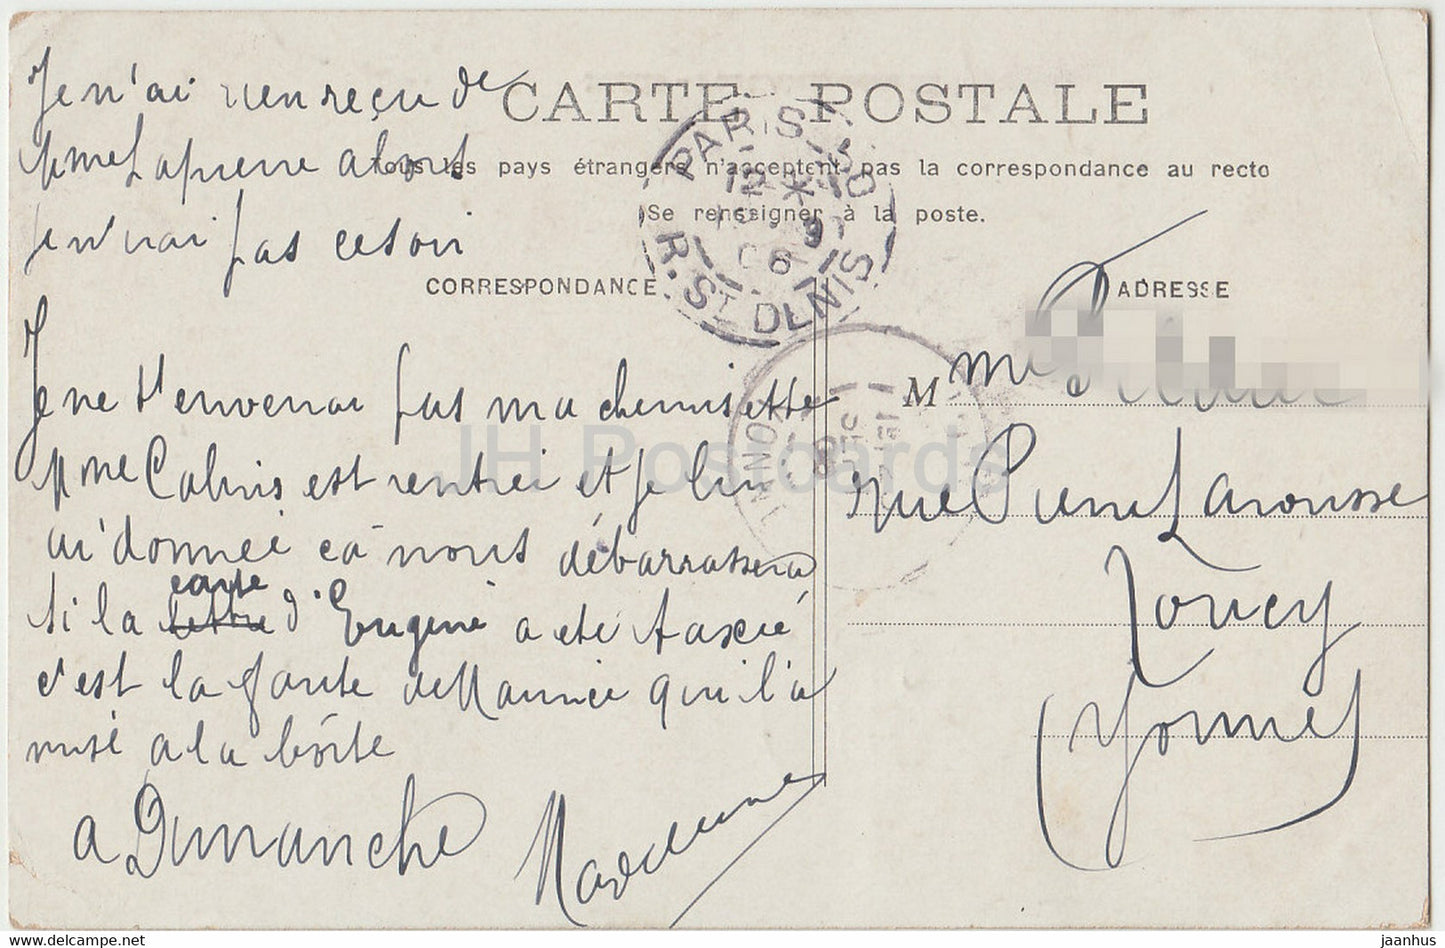 Je n'ai rien reçu de
Mme Lapierre alors
je n'irai pas ce soir
CARTE POSTALE
Tous les pays étrangers n'acceptent pas la correspondance au recto
Se renseigner à la poste.
PARIS 50
12 * 10
9
06
R. ST DENIS
CORRESPONDANCE
ADRESSE
Je ne t'enverrai pas ma chemisette
Mme Calmis est rentrei et je lui
ai donnéé ça nous débarrassera
si la carte lettre d'Eugène a été taxée
c'est la faute de Maurice qui l'a
mise a la boîte
a Dimanche Madeleine
M me
rue Pierre Larousse
Toucy
(Yonne)
YONNE
JH Postcards
www.delcampe.net
jaanhus